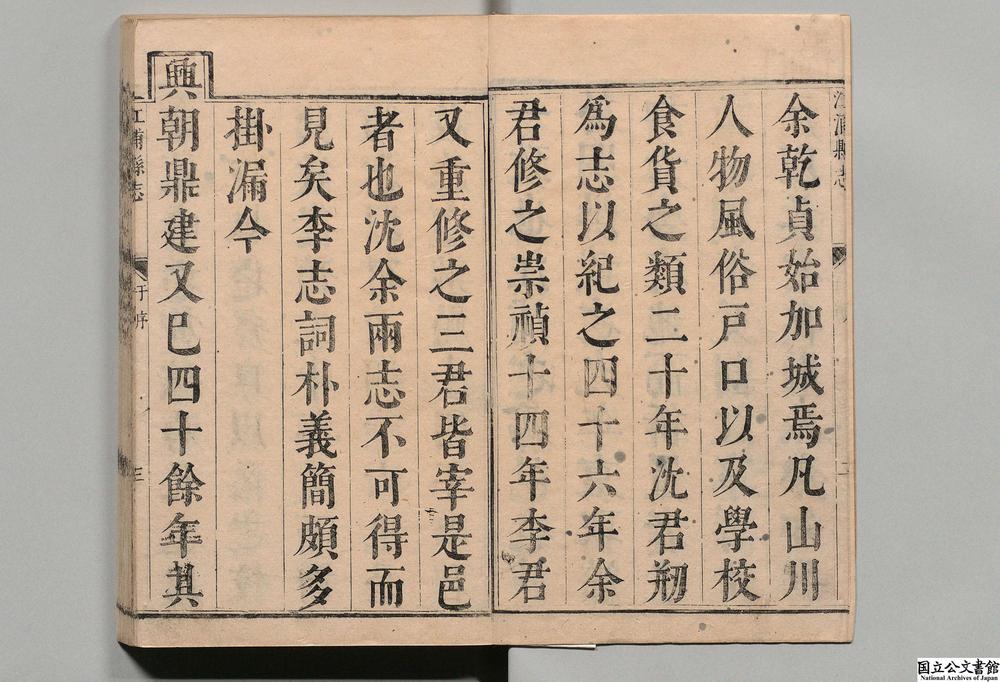 余乾貞始加城焉凡山川
人物風俗戸口以及學校
食貨之類二十年沈君剏
爲志以紀之四十六年余
君修之崇禎十四年李君
又重修之三君皆宰是邑
者也沈余兩志不可得而
見矣李志詞朴義簡頗多
掛漏今
興朝鼎建又巳四十餘年其
江浦縣志
序
三
江浦縣志
国立公文書館
National Archives of Japan